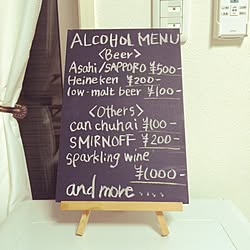 ALCOHOL MENU
<Beer>
Asahi/SAPPORO ¥500-
Heineken ¥200-
low-malt beer ¥100-
<Others>
can chuhai ¥100-
SMIRNOFF ¥200-
sparkling wine
¥1000-
and more ....